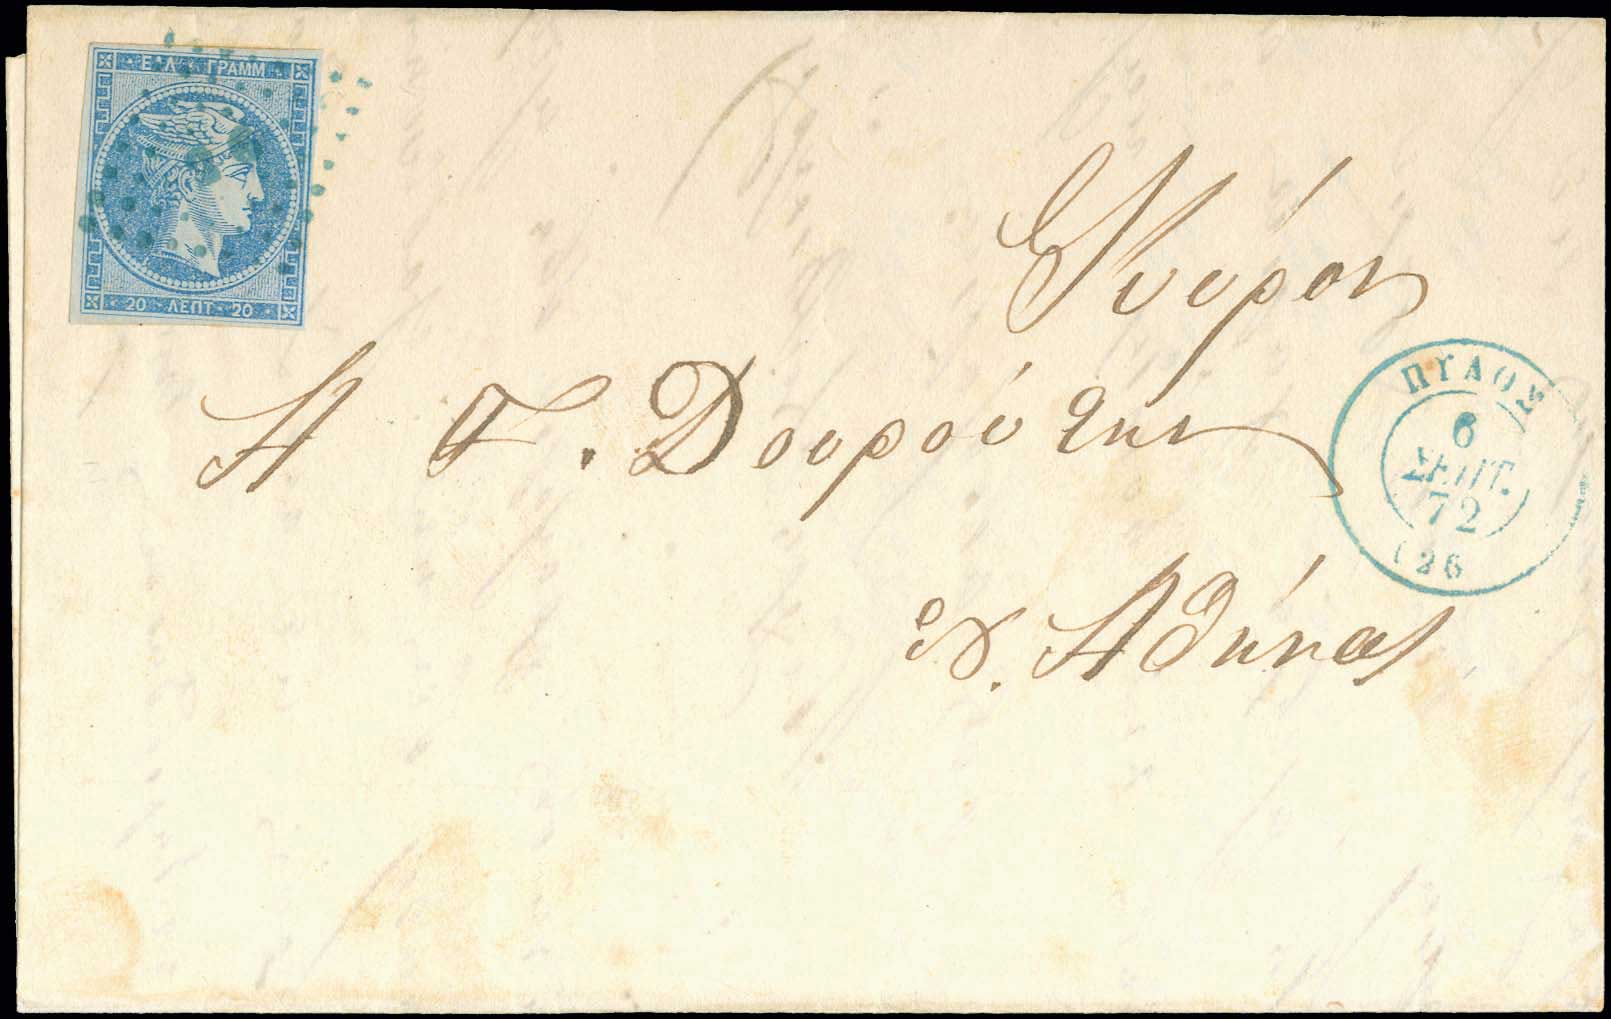 ΕΛΛ ΓΡΑΜΜ
20 ΛΕΠΤ 20
Κύριον
Α Γ. Δουρούτην
ΠΥΛΟΣ
6
ΣΕΠΤ.
72
(26
εἰς Ἀθήνας